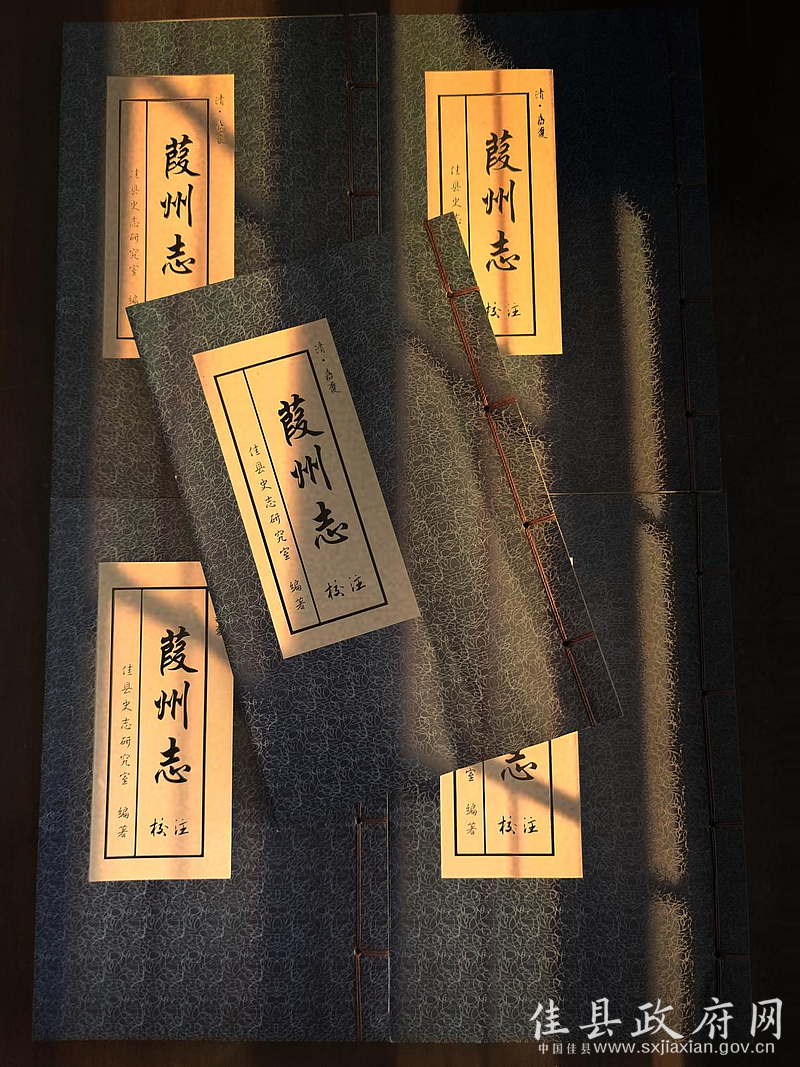 清·
葭州志
佳县史志研究室 编
清·
葭州志
佳县史
校注
清·
葭州志
校注
佳县史志研究室 编著
葭州志
校注
佳县史志研究室 编著
志
校注
室 编著
佳县政府网
中国佳县www.sxjiaxian.gov.cn